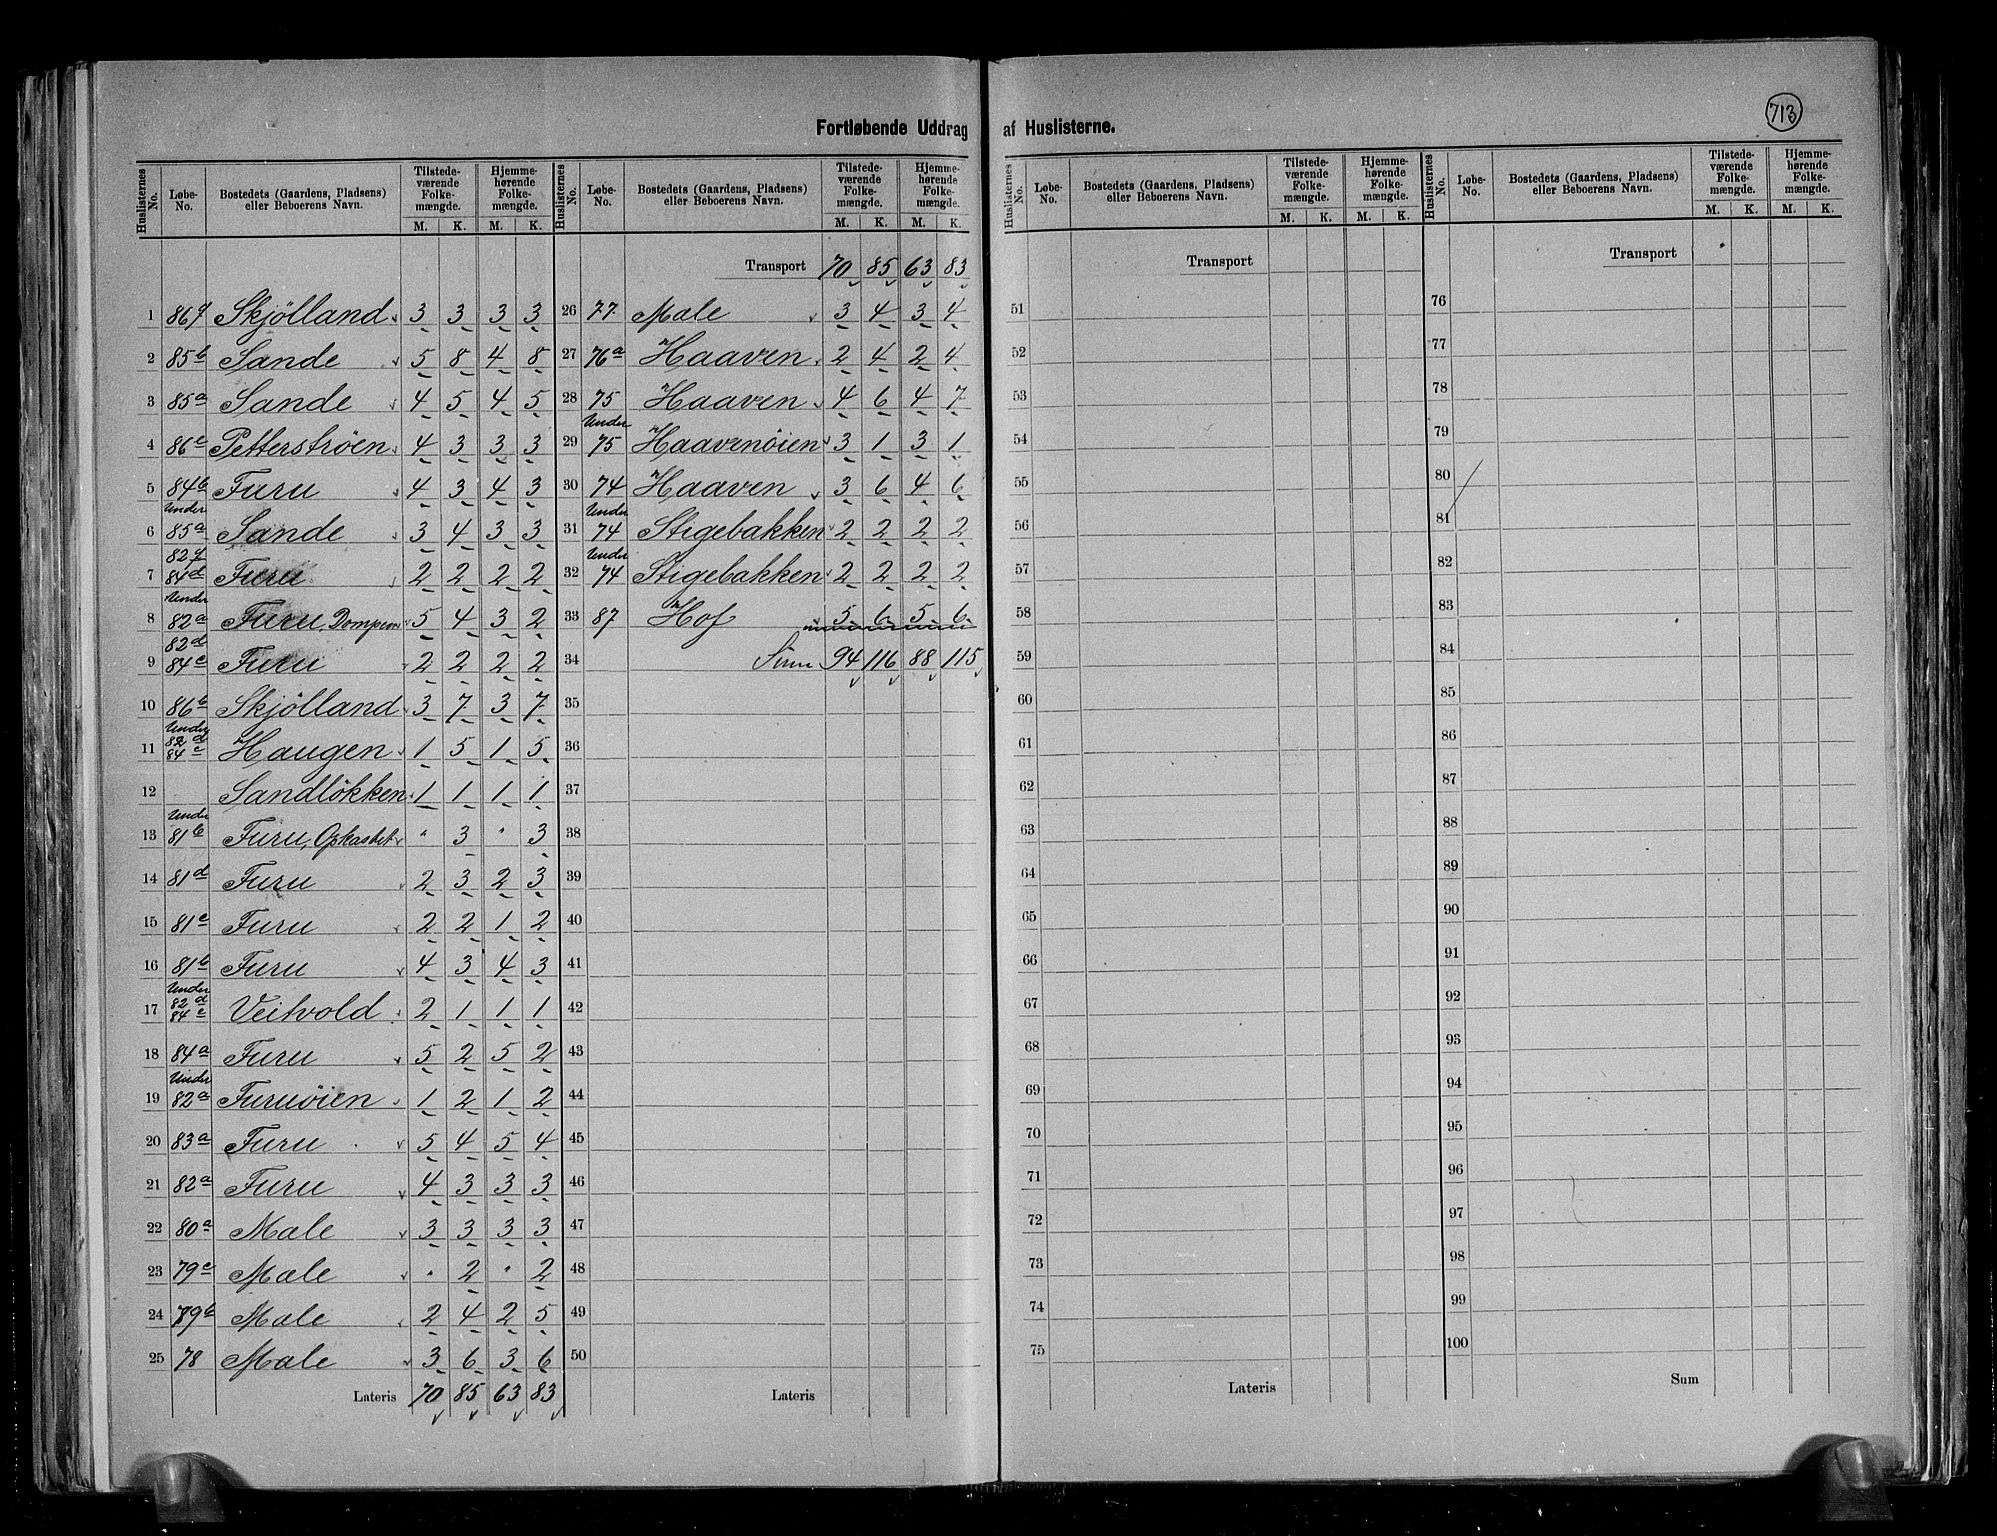 713
Fortløbende Uddrag af Huslisterne.
Huslisternes No. | Løbe-No. | Bostedets (Gaardens, Pladsens) eller Beboerens Navn. | Tilstedeværende Folkemængde. M. K. | Hjemmehørende Folkemængde. M. K.
1 86 Skjölland 3 3 3 3
2 85b Sande 5 8 4 8
3 85a Sande 4 5 4 5
4 86c Petterströen 4 3 3 3
5 84b Furu 4 3 4 3
6 Under 85a Sande 3 4 3 3
7 82 84d Furu 2 2 2 2
8 Under 82a Furu, Dompen 5 4 3 2
9 82d 84c Furu 2 2 2 2
10 86b Skjölland 3 7 3 7
11 Under 82d 84c Haugen 1 5 1 5
12 Sandlökken 1 1 1 1
13 Under 81b Furu, Opkastet " 3 " 3
14 81d Furu 2 3 2 3
15 81c Furu 2 2 1 2
16 81b Furu 4 3 4 3
17 Under 82d 84c Veitvold 2 1 1 1
18 84a Furu 5 2 5 2
19 Under 82a Furuöien 1 2 1 2
20 83a Furu 5 4 5 4
21 82a Furu 4 3 3 3
22 80a Male 3 3 3 3
23 79c Male " 2 " 2
24 79b Male 2 4 2 5
25 78 Male 3 6 3 6
Lateris 70 85 63 83
Huslisternes No. | Løbe-No. | Bostedets (Gaardens, Pladsens) eller Beboerens Navn. | Tilstedeværende Folkemængde. M. K. | Hjemmehørende Folkemængde. M. K.
Transport 70 85 63 83
26 77 Male 3 4 3 4
27 76a Haaven 2 4 2 4
28 75 Haaven 4 6 4 7
29 Under 75 Haavenöien 3 1 3 1
30 74 Haaven 3 6 4 6
31 Under 74 Stigebakken 2 2 2 2
32 Under 74 Stigebakken 2 2 2 2
33 87 Hof 5 6 5 6
34 Sum 94 116 88 115
35
36
37
38
39
40
41
42
43
44
45
46
47
48
49
50
Lateris
Huslisternes No. | Løbe-No. | Bostedets (Gaardens, Pladsens) eller Beboerens Navn. | Tilstedeværende Folkemængde. M. K. | Hjemmehørende Folkemængde. M. K.
Transport
51
52
53
54
55
56
57
58
59
60
61
62
63
64
65
66
67
68
69
70
71
72
73
74
75
Lateris
Huslisternes No. | Løbe-No. | Bostedets (Gaardens, Pladsens) eller Beboerens Navn. | Tilstedeværende Folkemængde. M. K. | Hjemmehørende Folkemængde. M. K.
Transport
76
77
78
79
80
81
82
83
84
85
86
87
88
89
90
91
92
93
94
95
96
97
98
99
100
Sum